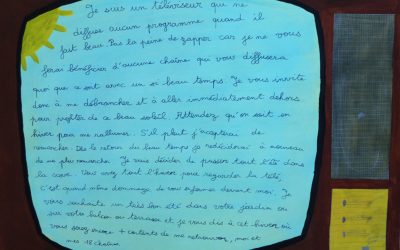 Je suis un téléviseur qui ne
diffuse aucun programme quand il
fait beau. Pas la peine de zapper car je ne vous
ferai bénéficier d'aucune chaîne qui vous diffusera
quoi que ce soit avec un si beau temps. Je vous invite
donc à me débrancher et à aller immédiatement dehors
pour profiter de ce beau soleil. Attendez qu'on soit en
hiver pour me rallumer. S'il pleut j'accepterai de
remarcher. Dès le retour du beau temps je à nouveau
de ne plus remarcher. Je vous de passer tout l'été dans
la cave. Vous avez tout l'hiver pour regarder la télé,
c'est quand même dommage de vous enfermer devant moi. Je
vous souhaite un très bon été dans votre jardin ou
sur votre balcon ou terrasse et je vous dis à cet hiver où
vous serez encore + contents de me retrouver, moi et
mes 18 chaînes.